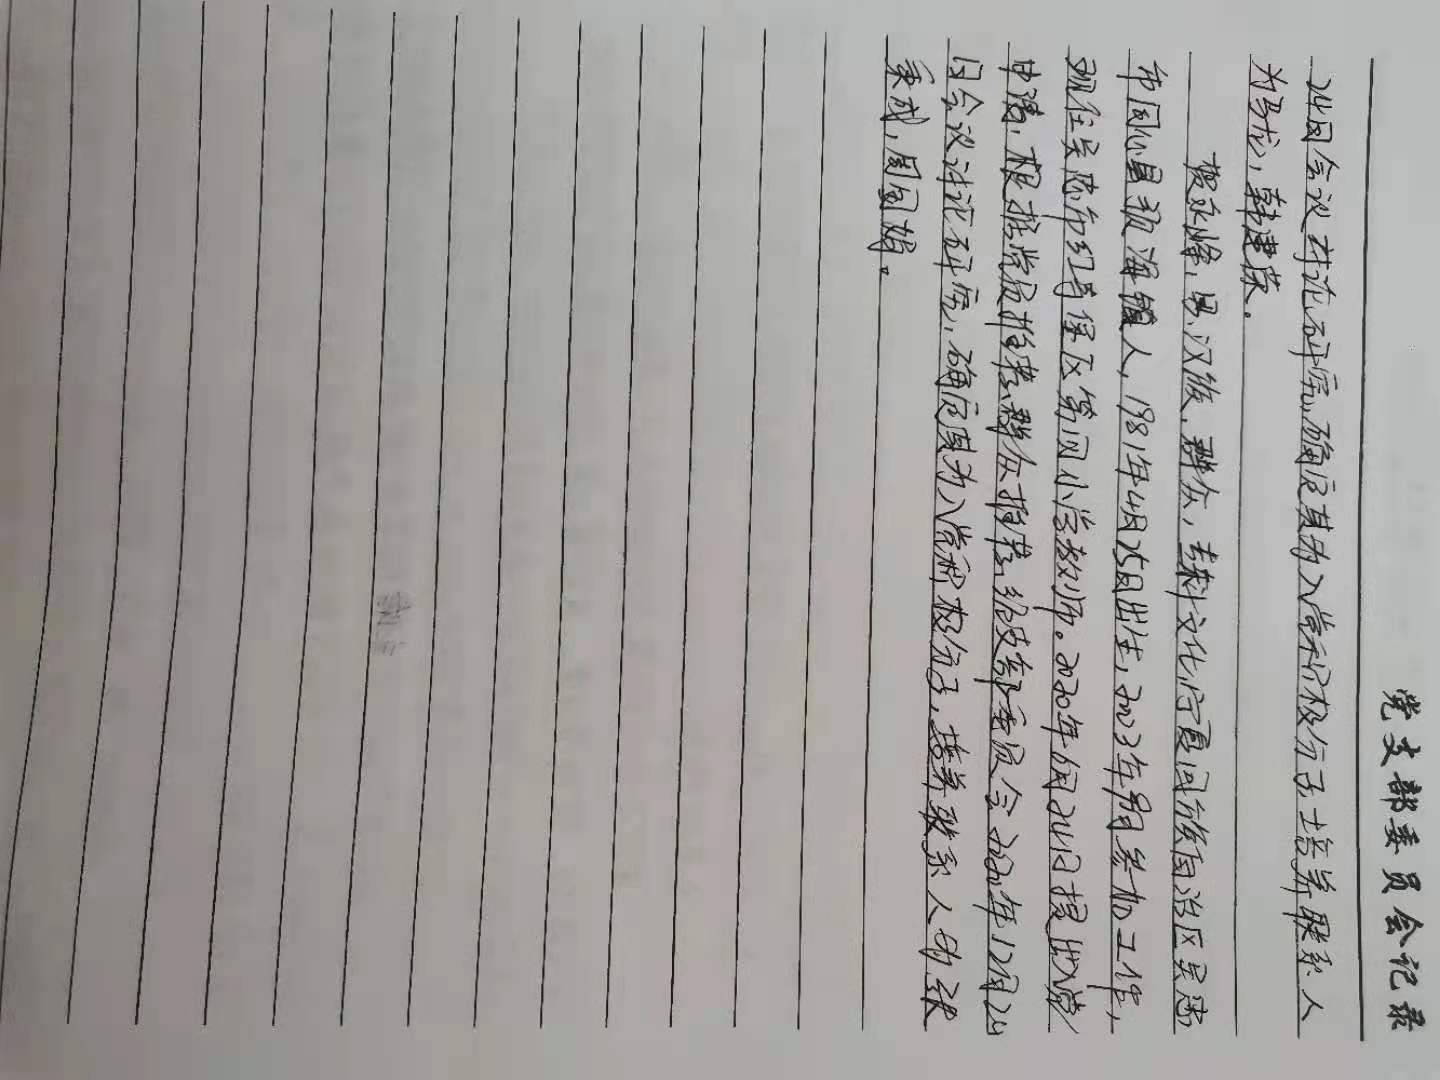 党支部委员会记录
24日会议讨论研究,确定其为入党积极分子培养联系人
为马龙,韩建荣。
永峰,男,汉族,群众,专科文化,宁夏回族自治区吴忠
市同心县预海镇人,1981年4月25日出生,2003年9月参加工作,
现任吴忠市红寺堡区第四小学教师。2020年6月24日提出入党
申请,根据党员推荐、群众推荐,经支部委员会2020年12月24
日会议讨论研究,确定其为入党积极分子,培养联系人为张
秉成,周国娟。